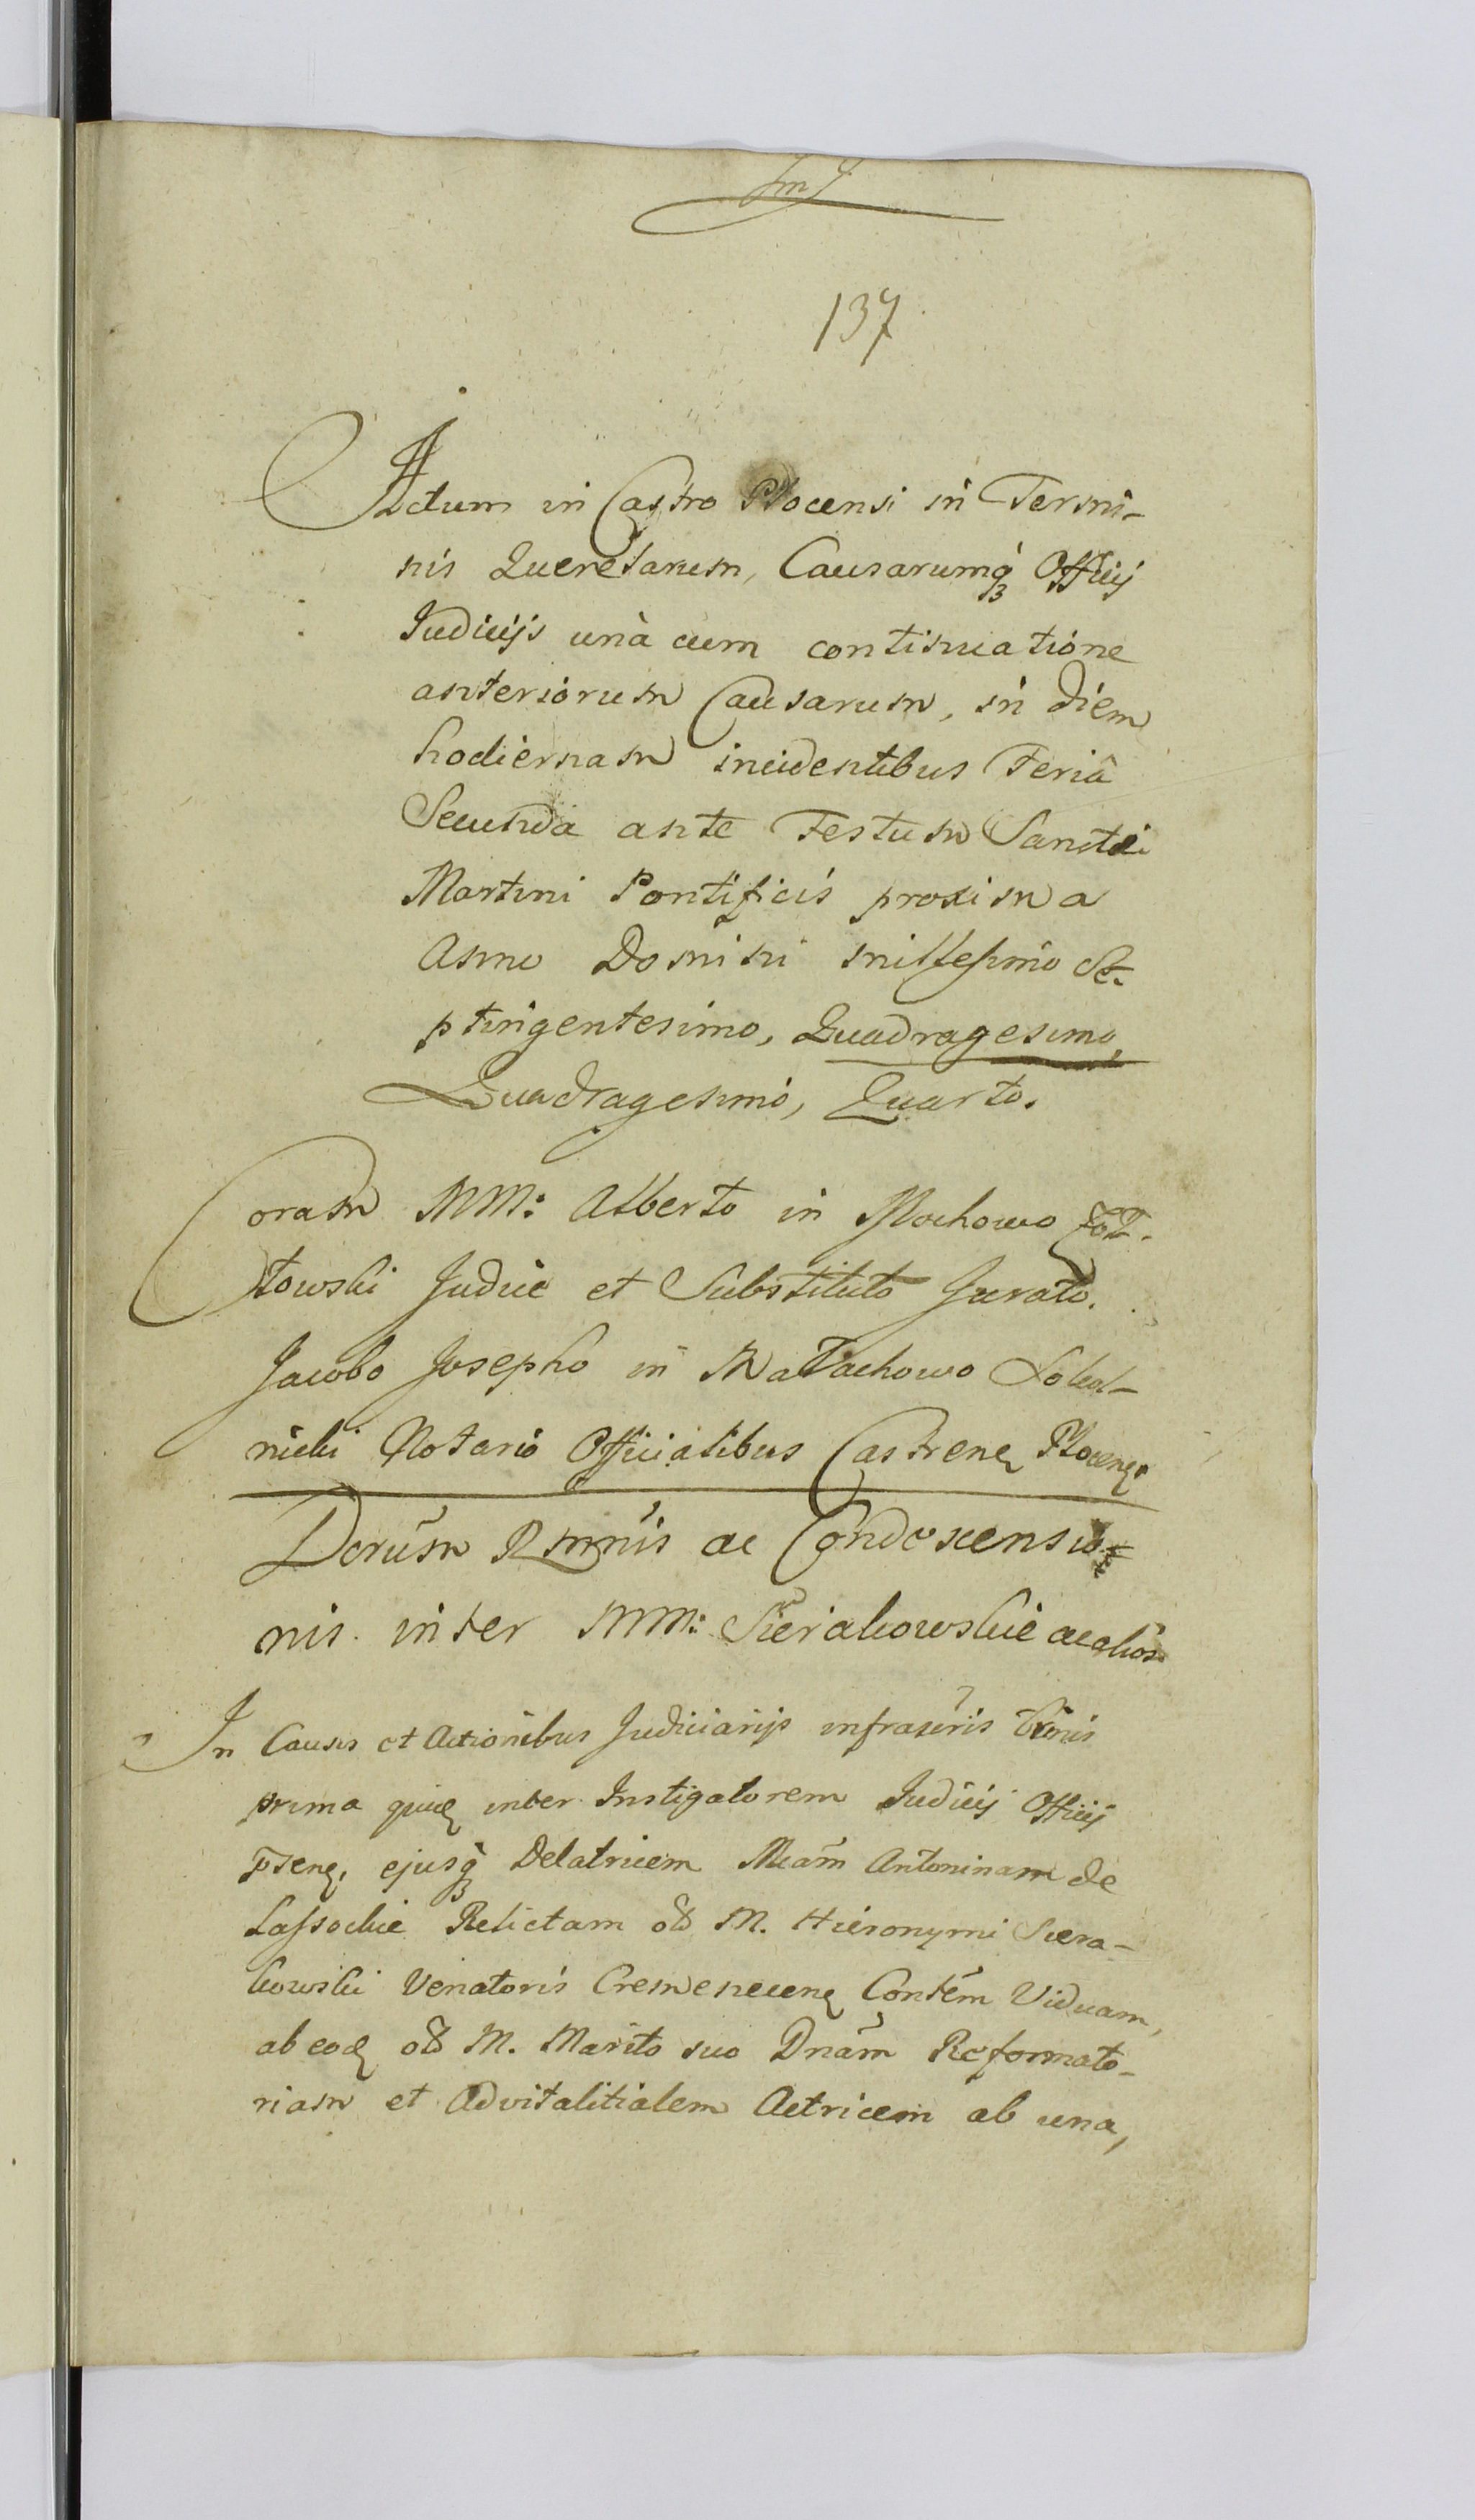 137
Actum in Castro Plocensi in Termi-
nis Querelarum, Causarumq́ꝫ Officij
Judicijs unà cum continuatione
anteriorum Causarum, in diem
hodiernam incidentibus Feriâ
Secunda ante Festum Sancti
Martini Pontificis proxima
Anno Domini millesimo Se-
ptingentesimo, Quadragesimo,
Quadragesimo, Quarto.
Coram MM: Alberto in Mochowo
Judice et Substituto Jurato.
Jacobo Josepho in Małachowo
Notario Officialibus Castren Plocen.
Inter MM: Sierakowskie ac alios
In Causis et Actionibus Judiciarijs infrascris
prima quidę inter Instigatorem Judicij Officij
pñtenę, ejusq́ꝫ Delatricem Mcam̃ Antoninam de
Lassockie Relictam olī M. Hieronymi Siera-
kowski Venatoris Cremenecenę Const̃em Viduam,
ab eodę olī M. Marito suo Dnãm Reformato-
riam et Advitalitialem Actricem ab una,